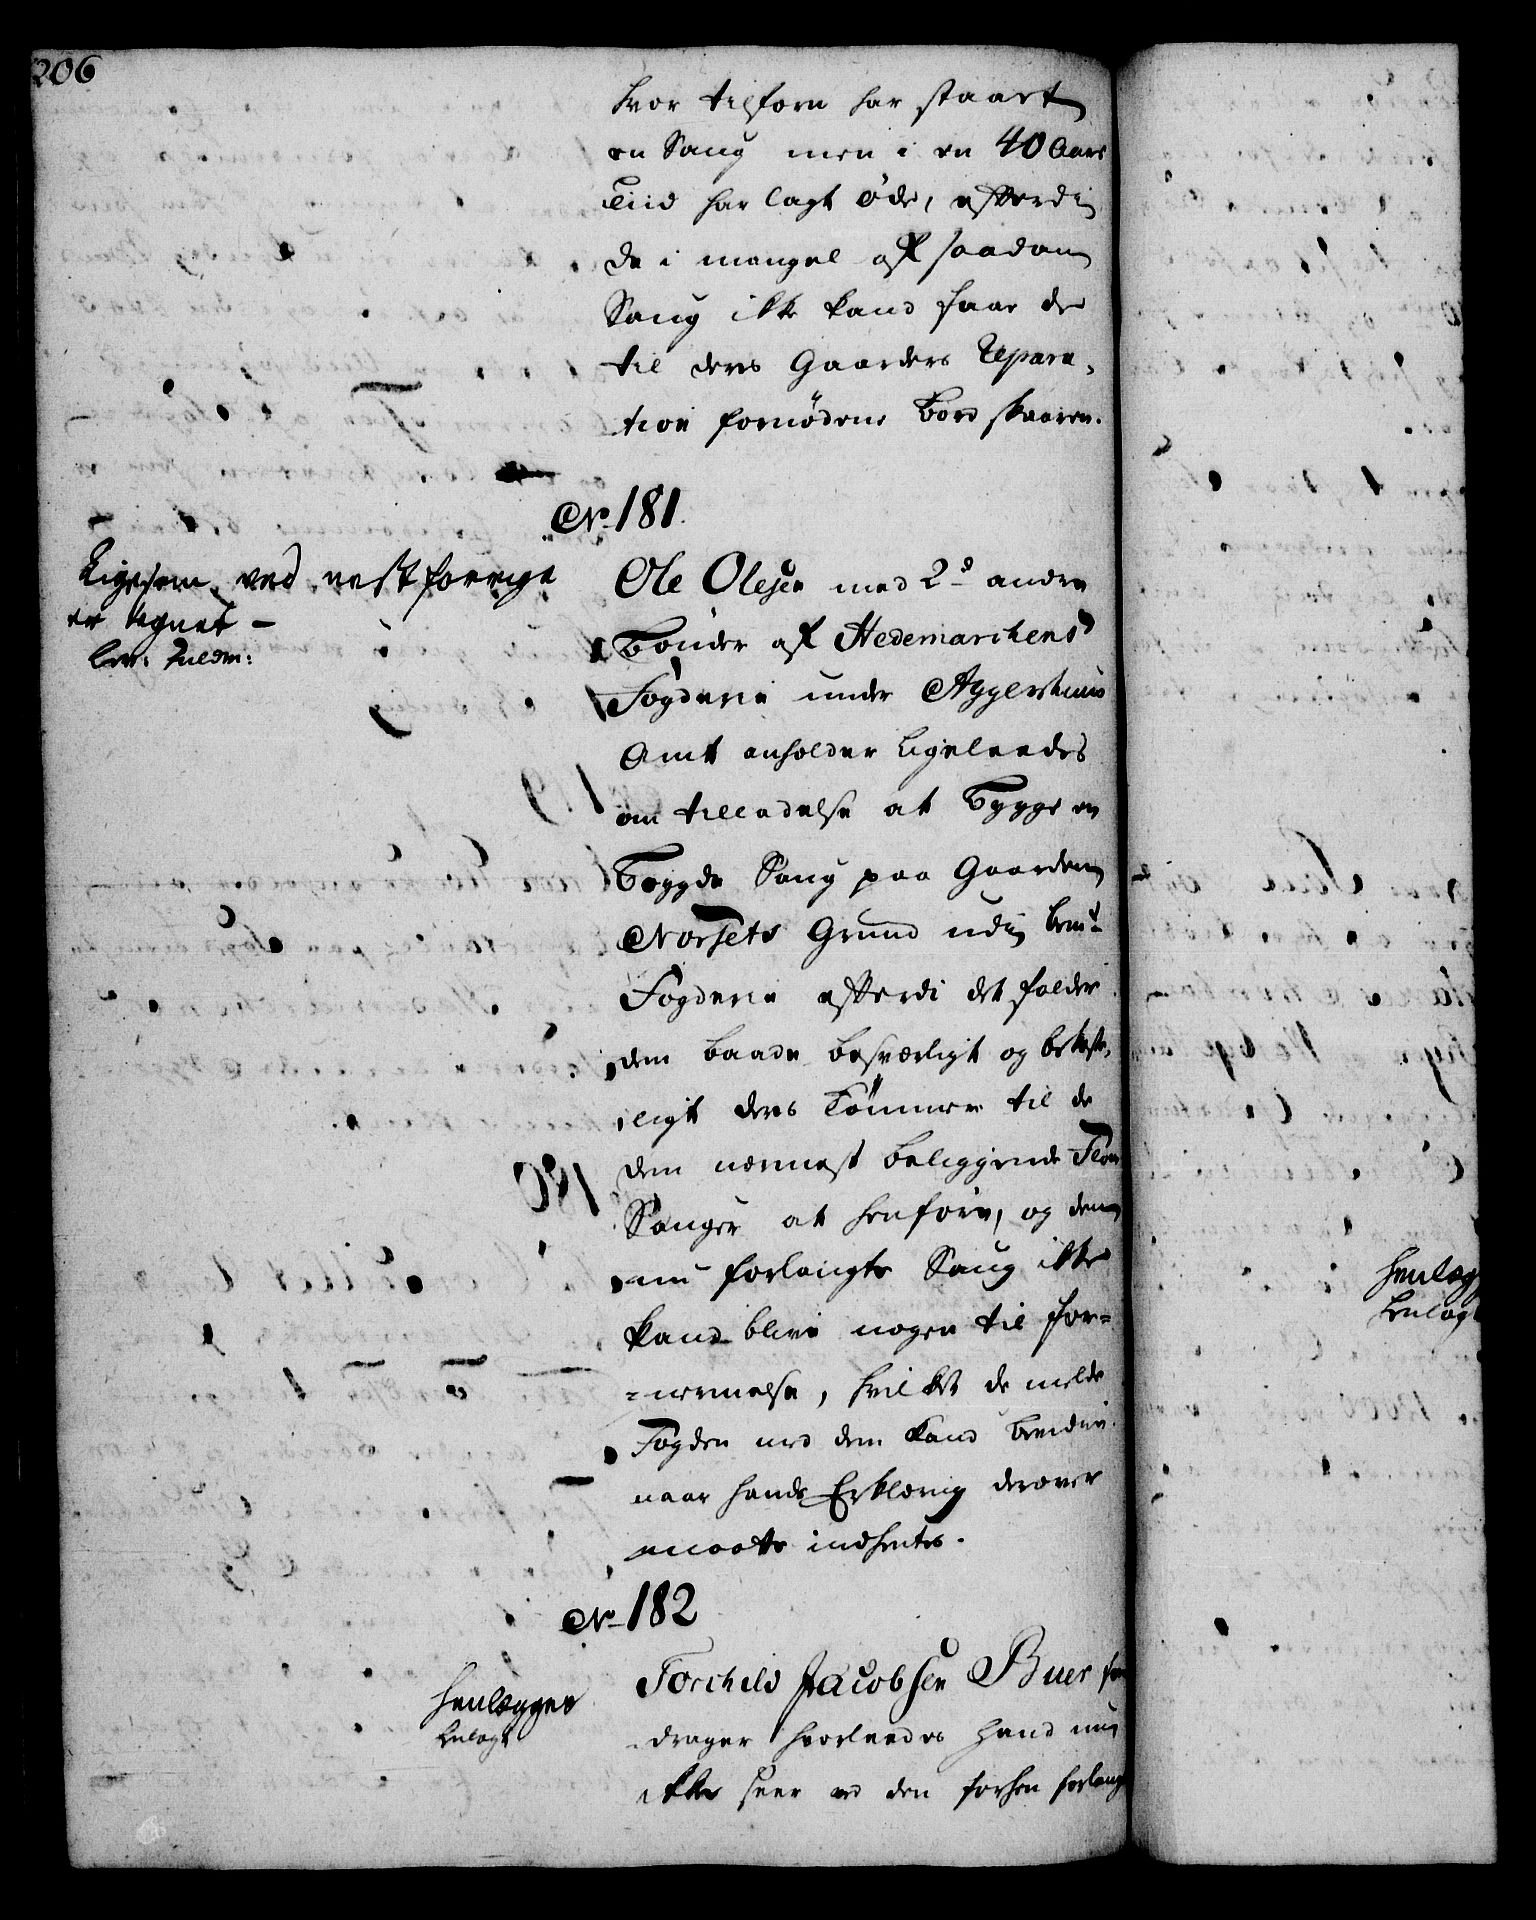 206
hvor tilforn har staaet
en Saug men i en 40 Aars
Tiid har lagt øde, efterdi
de i mangel af saadan
Saug ikke kand faae de
til deres Gaarders Repara-
tion fornødene Bord skaaren.
No 181.
Ligesom ved nestforrige
er tegnet -
Ole Olesen med 2de andre
Bønder af Hedemarchens
Fogderie under Aggershuus
Amt anholder ligeleedes
om tilladelse at bygge en
Bøygde Saug paa Gaarden
Norsets Grund udi bemte
Fogderie efterdi det falder
dem baade besværligt og bekost-
ligt deres Tømmer til de
dem nærmest beliggende Flom
Sauger at henføre, og denne
nu forlangte Saug ikke
kand blive nogen til for-
nærmelse, hvilket de melde
Fogden med dem kand bevidne
naar hands Erklæring derover
maatte indhentes.
No 182
henlægges
henlagt
Torchild Jacobsen Buer for
drager hvorleedes hand nu
ikke seer ved den forhen forlang
henlæg
henlagt